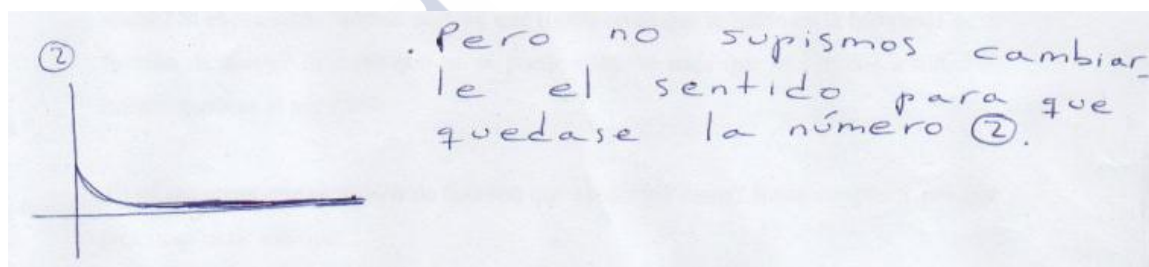 ②
. Pero no supismos cambiar_
le el sentido para que
quedase la número ②.